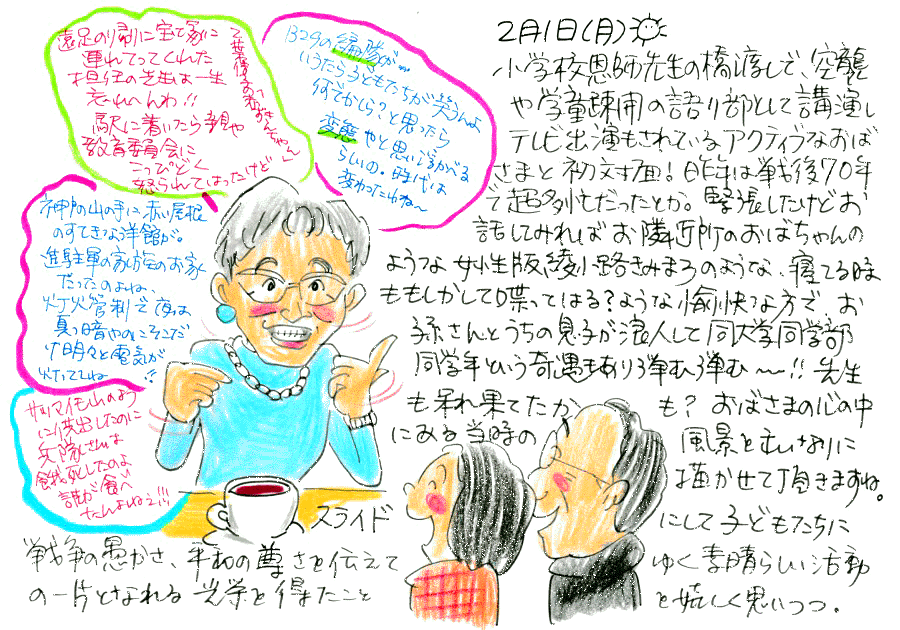 2月1日(月)
小学校恩師先生の橋渡しで、空襲
や学童疎開の語り部として講演し
テレビ出演もされているアクティブなおば
さまと初対面！昨年は戦後70年
で超多忙だったとか。緊張したけどお
話してみればお隣近所のおばちゃんの
ような女性版綾小路きみまろのような、寝てる時
ももしかして喋ってはる？ような愉快な方で、お
孫さんとうちの息子が浪人して同大学同学部
同学年という奇遇もあり弾む弾む〜!! 先生
も呆れ果てたかも？おばさまの心の中
にある当時の風景をむいなりに
描かせて頂きますね。
スライドにして子どもたちに
戦争の愚かさ、平和の尊さを伝えてゆく素晴らしい活動
の一片となれる光栄を得たことを嬉しく思いつつ。
遠足の帰りに宝塚に
連れてってくれた
担任の先生は一生
忘れへんわ!!
駅に着いたら親や
教育委員会に
こっぴどく
怒られてはったけど
B29の編隊が…
いうたら子どもたちが笑うんよ
何でかしら？と思ったら
変態やと思いうかべる
らしいの。時代は
変わったわね〜
神戸の山の手に赤い屋根
のすてきな洋館が。
進駐軍の家族のお家
だったのよね、
灯火管制で夜は
真っ暗やのにそこだ
け明々と電気が
灯っててね!!
サツマイモ山のよう
に供出したのに
兵隊さんは
餓死したのよ
誰が食べ
たんよねえ!!!